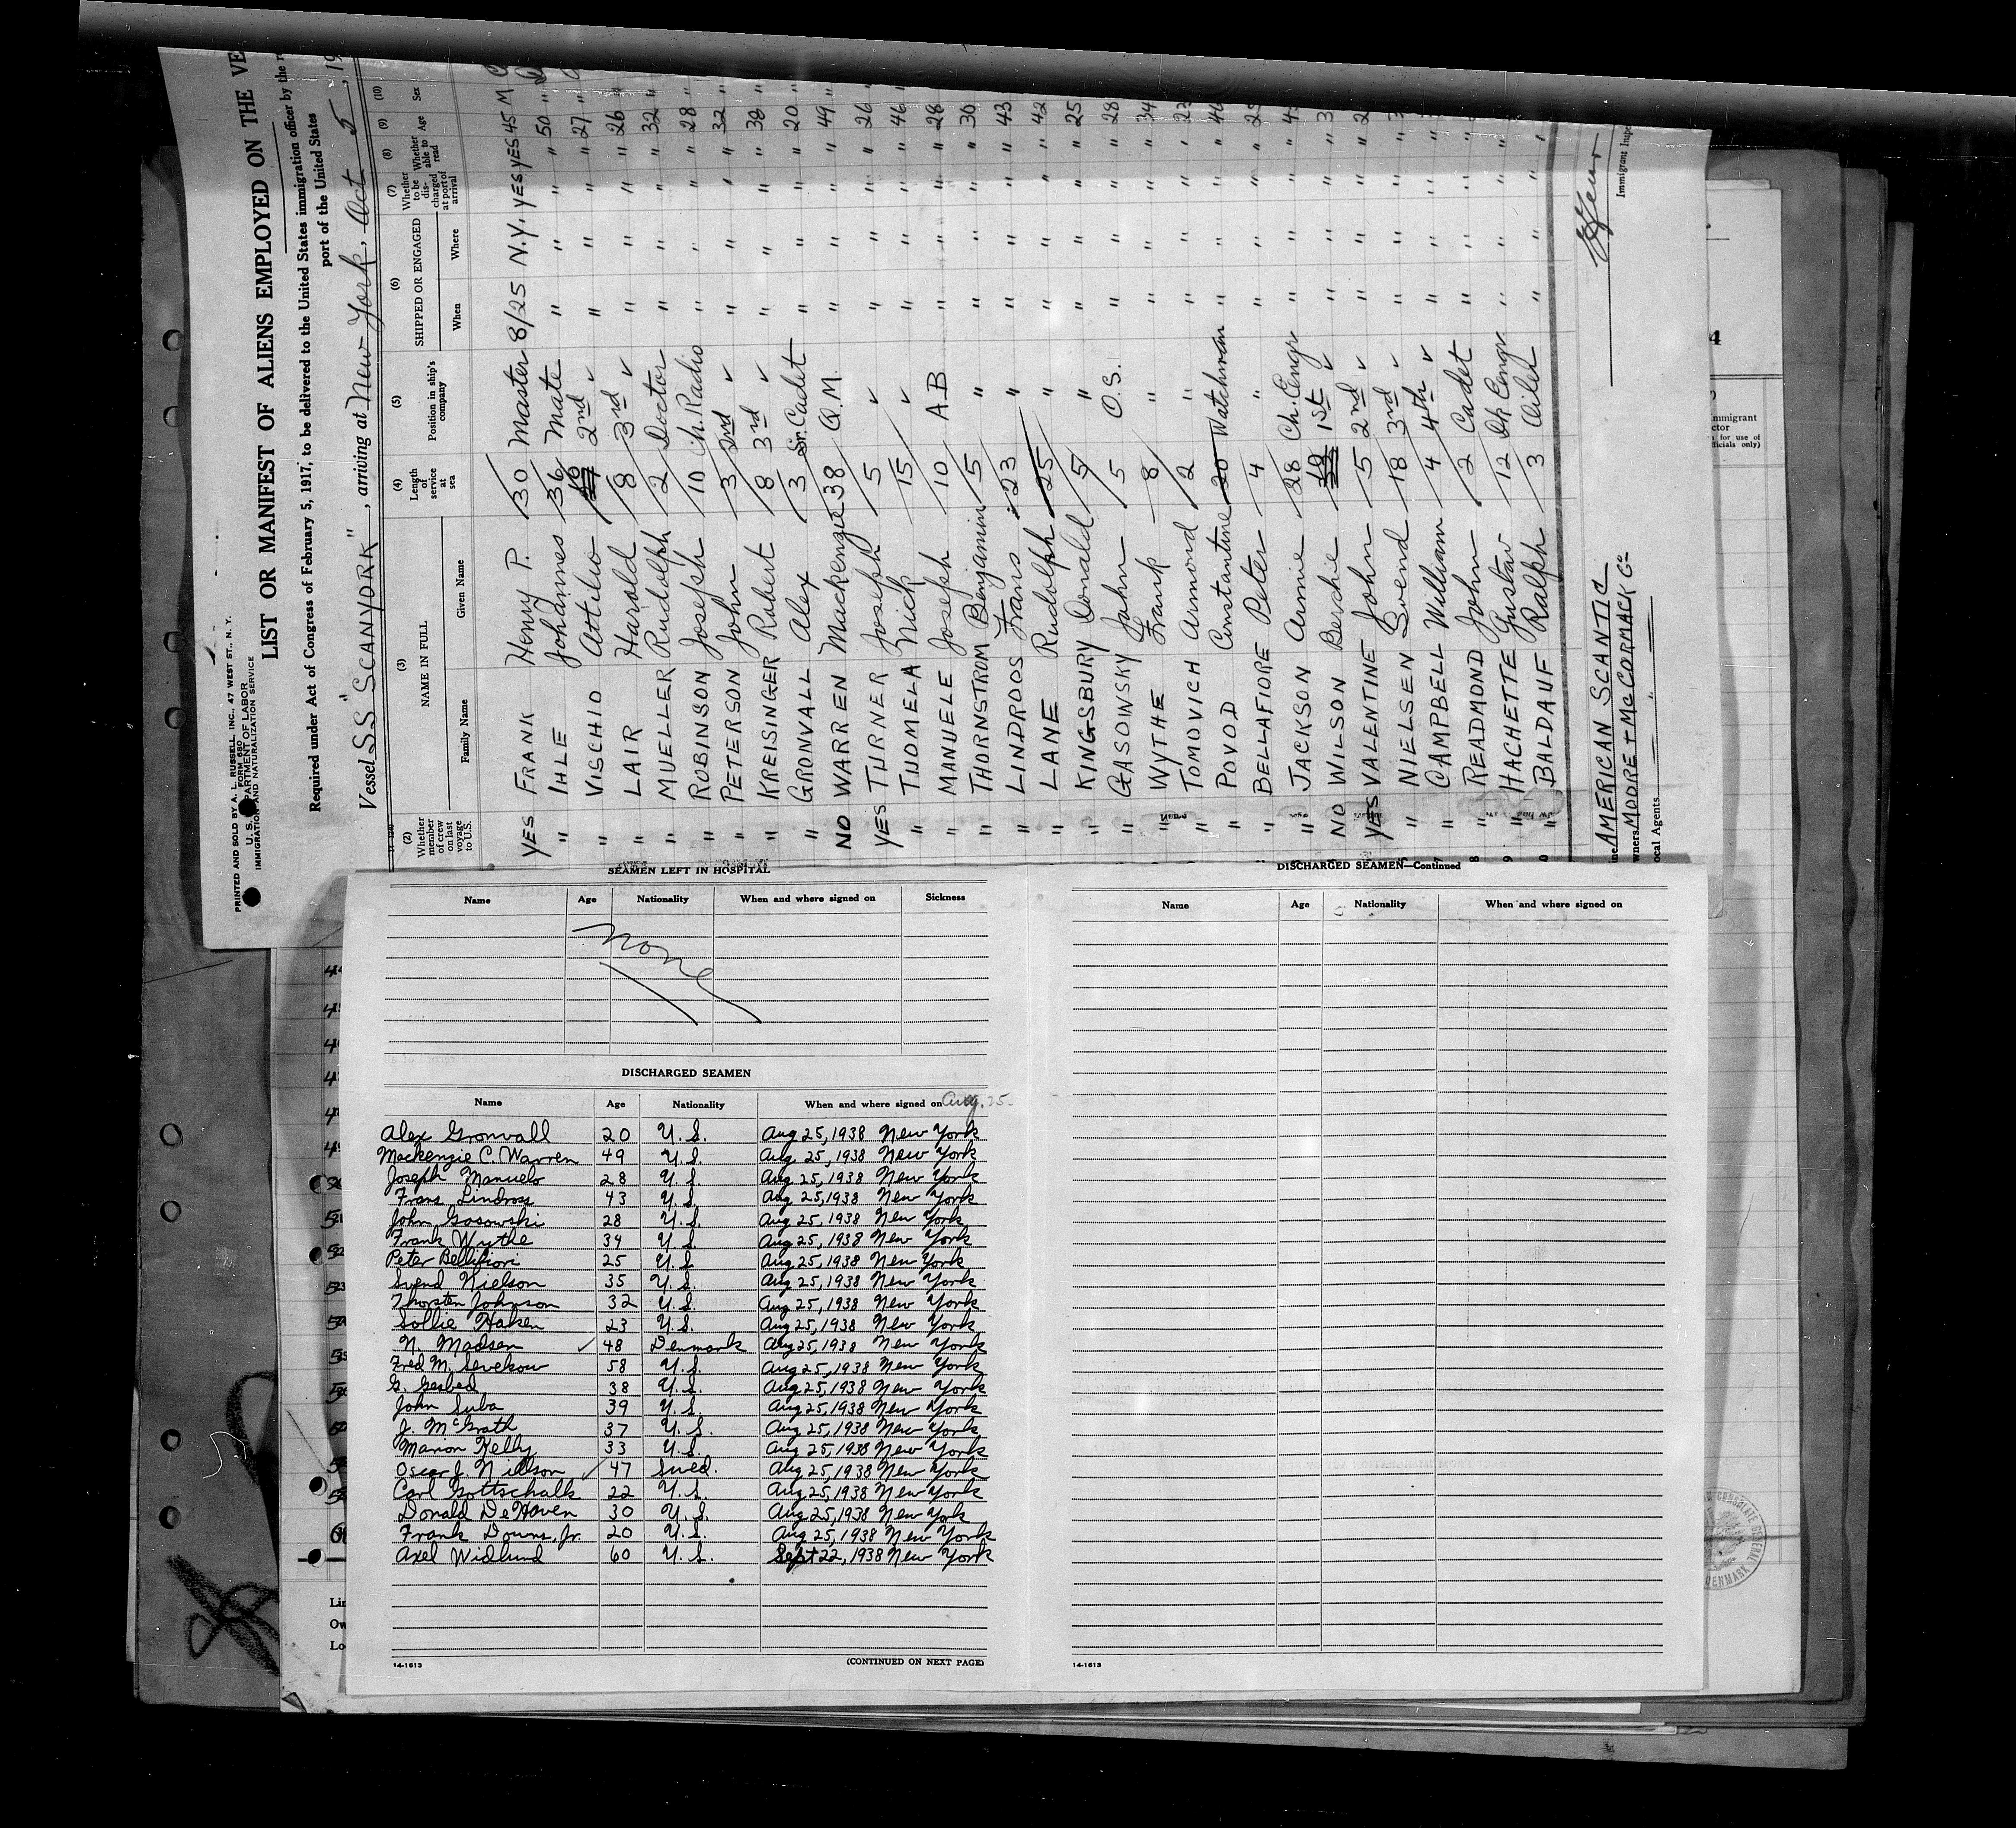 PRINTED AND SOLD BY A. L. RUSSELL, INC., 47 WEST ST., N. Y.
FORM 680
U. S. DEPARTMENT OF LABOR
IMMIGRATION AND NATURALIZATION SERVICE
LIST OR MANIFEST OF ALIENS EMPLOYED ON THE VE
Required under Act of Congress of February 5, 1917, to be delivered to the United States immigration officer by the
port of the United States
Vessel SS "SCANYORK", arriving at New York, Oct 5, 19
(2) Whether member of crew on last voyage to U.S. (3) NAME IN FULL Family Name Given Name (4) Length of service at sea (5) Position in ship's company (6) SHIPPED OR ENGAGED When Where (7) Whether to be discharged at port of arrival (8) Whether able to read (9) Age (10) Sex
YES FRANK Henry P. 30 Master 8/25 N.Y. YES YES 45 M
" IHLE Johannes 36 Mate " " " " 50 "
" VISCHIO Attilio 2nd " " " " 27 "
" LAIR Harold 8 3rd " " " " 26 "
" MUELLER Rudolph 2 Doctor " " " " 32 "
" ROBINSON Joseph 10 Ch. Radio " " " " 28 "
" PETERSON John 3 2nd " " " " 32 "
" KREISINGER Robert 8 3rd " " " " 38 "
" GRONVALL Alex 3 Sr. Cadet " " " " 20 "
NO WARREN Mackenzie 38 Q.M. " " " " 49 "
YES TURNER Joseph 5 " " " " 26 "
" TUOMELA Nick 15 " " " " 46 "
" MANUELE Joseph 10 A.B. " " " " 28 "
" THORNSTROM Benjamin 5 " " " " " 30 "
" LINDROOS Frans 23 " " " " " 43 "
" LANE Rudolph 25 " " " " " 42 "
" KINGSBURY Donald 5 " " " " " 25 "
" GASOINSKY John 5 O.S. " " " " 28 "
" WYTHE Frank 8 " " " " " 34 "
" TOMOVICH Armond 2 " " " " "
" POVOD Constantine 20 Watchman " " " "
" BELLAFIORE Peter 4 " " " "
" JACKSON Armie 28 Ch. Engr " " " "
NO WILSON Berchie 1st " " " "
YES VALENTINE John 5 2nd " " " "
" NIELSEN Svend 18 3rd " " " "
" CAMPBELL William 4 4th " " " "
" READMOND John 2 Cadet " " " "
" HACHETTE Gustav 12 Dk Engr " " " "
" BALDAUF Ralph 3 Oiler " " " "
AMERICAN SCANTIC
wners MOORE + McCORMACK Co
ocal Agents
Immigrant Inspe
SEAMEN LEFT IN HOSPITAL
Name Age Nationality When and where signed on Sickness
None
DISCHARGED SEAMEN
Name Age Nationality When and where signed on Aug. 25
Alex Gronvall 20 U. S. Aug 25, 1938 New York
Mackenzie C. Warren 49 U. S. Aug. 25, 1938 New York
Joseph Manuelo 28 U. S. Aug 25, 1938 New York
Frans Lindross 43 U. S. Aug 25, 1938 New York
John Gosowski 28 U. S. Aug 25, 1938 New York
Frank Wythe 34 U. S. Aug 25, 1938 New York
Peter Bellifiori 25 U. S. Aug 25, 1938 New York
Svend Nielson 35 U. S. Aug 25, 1938 New York
Thorsten Johnson 32 U. S. Aug 25, 1938 New York
Sollie Haken 23 U. S. Aug 25, 1938 New York
N. Madsen 48 Denmark Aug 25, 1938 New York
Fred M. Sevekow 58 U. S. Aug 25, 1938 New York
G. Gerbed 38 U. S. Aug 25, 1938 New York
John Suba 39 U. S. Aug 25, 1938 New York
J. McGrath 37 U. S. Aug 25, 1938 New York
Marion Kelly 33 U. S. Aug 25, 1938 New York
Oscar J. Nillson 47 Swed. Aug 25, 1938 New York
Carl Gottschalk 22 U. S. Aug 25, 1938 New York
Donald DeHaven 30 U. S. Aug 25, 1938 New York
Frank Downs, Jr. 20 U. S. Aug 25, 1938 New York
Axel Widlund 60 U. S. Sept 22, 1938 New York
14-1613
(CONTINUED ON NEXT PAGE)
DISCHARGED SEAMEN—Continued
Name Age Nationality When and where signed on
14-1613